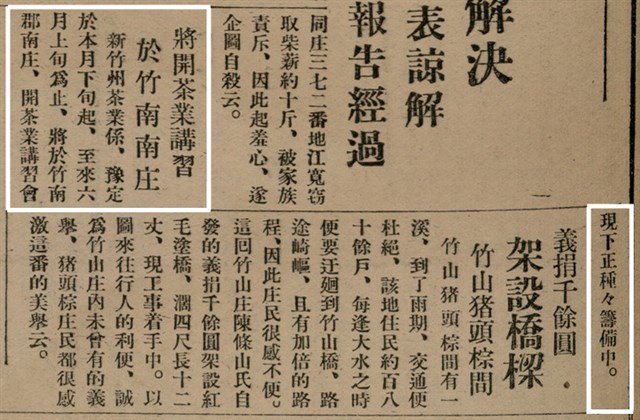 解決
表諒解
報告經過
同庄三七二番地江寬竊
取柴薪約十斤、被家族
責斥、因此起羞心、遂
企圖自殺云。
將開茶業講習
於竹南南庄
新竹州茶業係、豫定
於本月下旬起、至來六
月上旬爲止、將於竹南
郡南庄、開茶業講習會
現下正種々籌備中。
義捐千餘圓
架設橋樑
竹山猪頭棕間
竹山猪頭棕間有一
溪、到了雨期、交通便
杜絕、該地住民約百八
十餘戶、每逢大水之時
便要迂廻到竹山橋、路
途崎嶇、且有加倍的路
程、因此庄民很感不便。
這回竹山庄陳條山氏自
發的義捐千餘圓架設紅
毛塗橋、濶四尺長十二
丈、現工事着手中。以
圖來往行人的利便、誠
爲竹山庄內未曾有的義
舉、猪頭棕庄民都很感
激這番的美舉云。